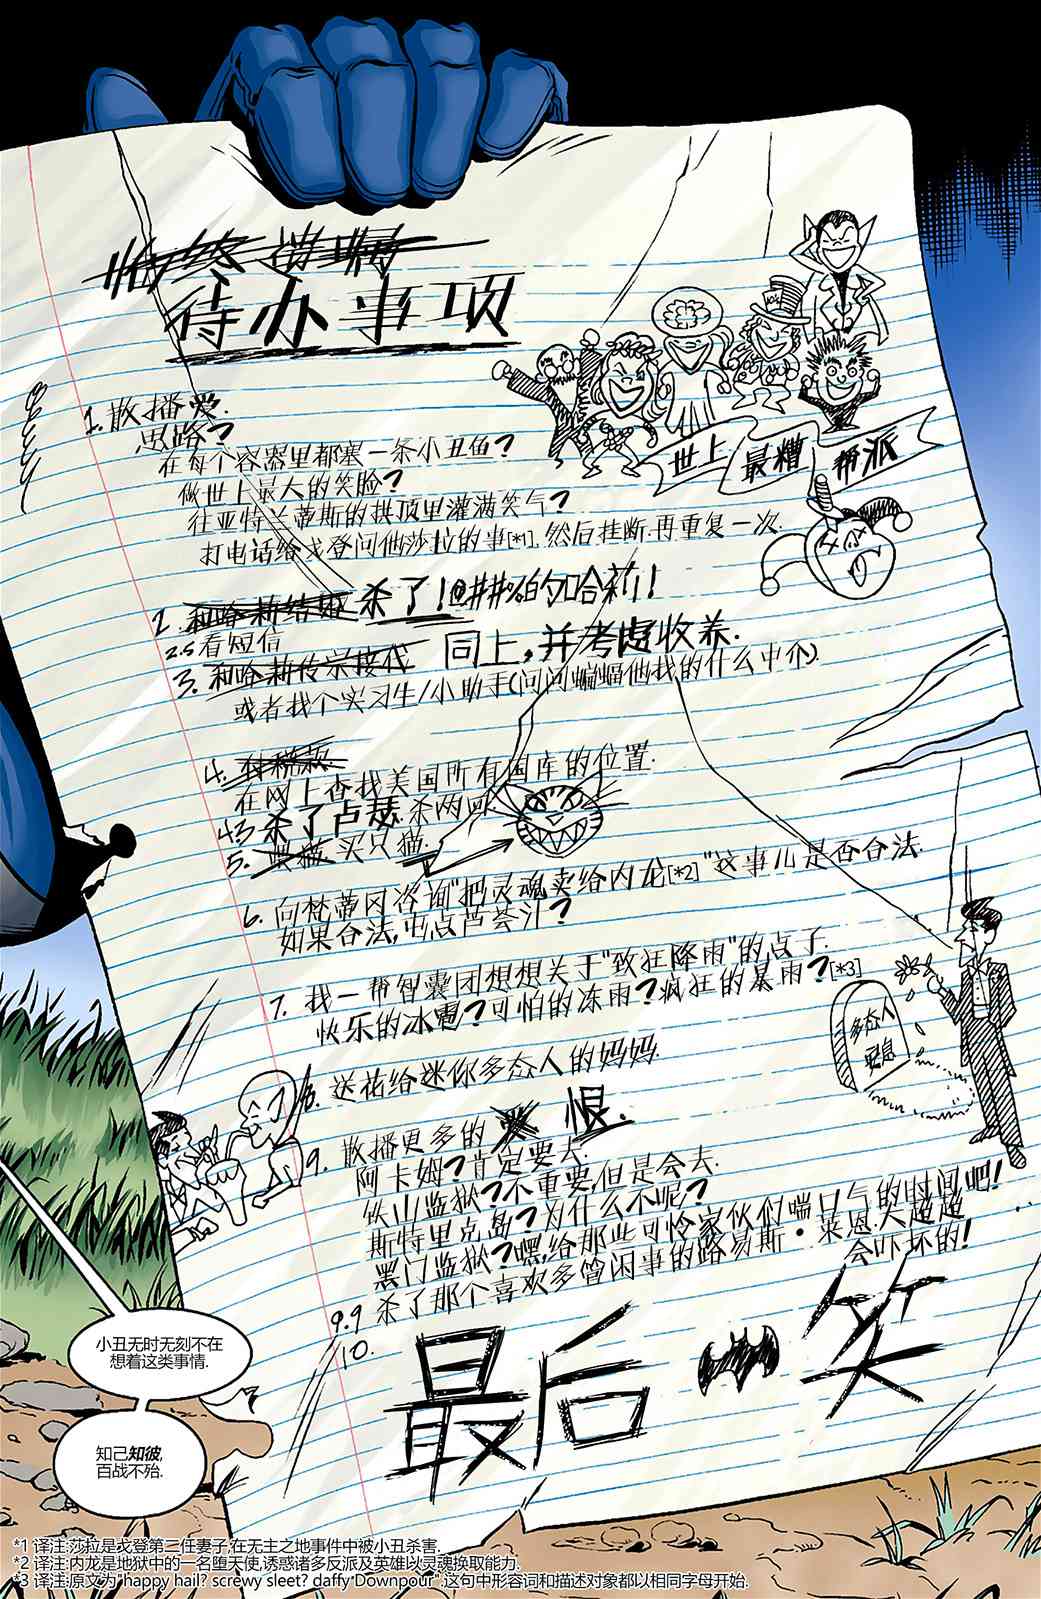 临终遗嘱
待办事项
1. 散播爱.
思路?
在每个容器里都塞一条小丑鱼?
做世上最大的笑脸?
往亚特兰蒂斯的拱顶里灌满笑气?
打电话给戈登问他莎拉的事[*1]. 然后挂断.再重复一次.
世上 最糟 帮派
2. 和哈莉结婚 杀了!@##%的哈莉!
2.5 看短信
3. 和哈莉传宗接代 同上,并考虑收养.
或者找个实习生/小助手(问问蝙蝠他找的什么中介).
4. 付税款.
在网上查找美国所有国库的位置.
4.3 杀了卢瑟.杀两回.
5. 喂猫. 买只猫.
6. 向梵蒂冈咨询"把灵魂卖给内龙[*2]"这事儿是否合法.
如果合法,屯点芦荟汁?
7. 找一帮智囊团想想关于"致狂降雨"的点子.
快乐的冰雹?可怕的冻雨?疯狂的暴雨?[*3]
多态人
更急
8. 送花给迷你多态人的妈妈.
9. 散播更多的 恨.
阿卡姆?肯定要去.
铁山监狱?不重要,但是会去.
斯特里克岛?为什么不呢?
黑门监狱?嘿,给那些可怜家伙们喘口气的时间吧!
9.9 杀了那个喜欢多管闲事的路易斯·莱恩.大超超
会吓坏的!
10.
最后一笑
小丑无时无刻不在
想着这类事情.
知己知彼,
百战不殆.
*1 译注:莎拉是戈登第二任妻子,在无主之地事件中被小丑杀害.
*2 译注:内龙是地狱中的一名堕天使,诱惑诸多反派及英雄以灵魂换取能力.
*3 译注:原文为"happy hail? screwy sleet? daffy Downpour".这句中形容词和描述对象都以相同字母开始.